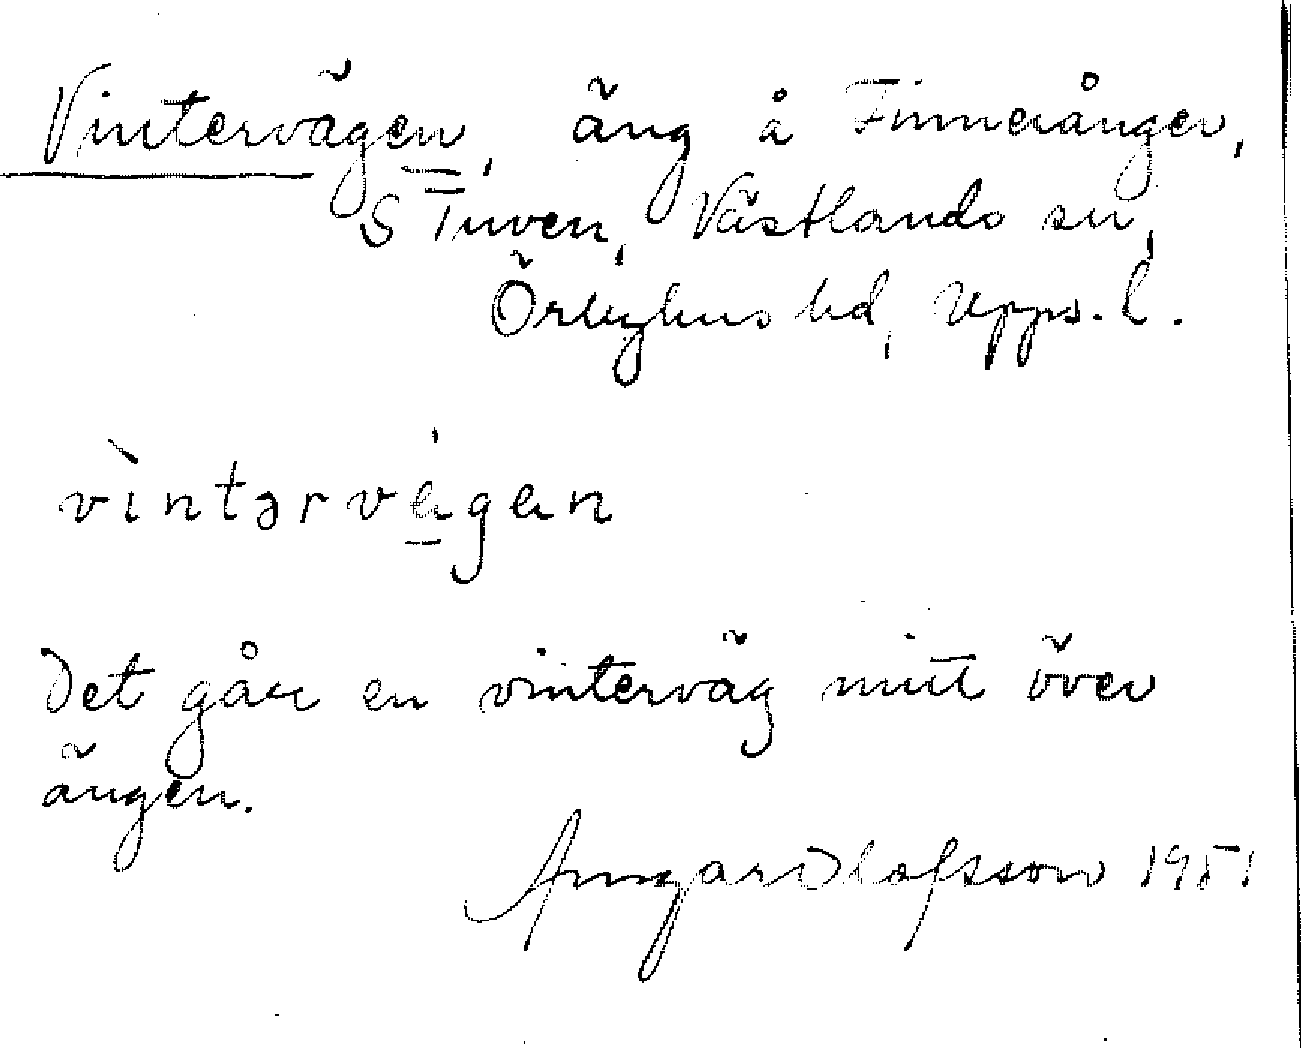 Vintervägen, äng å Finnerånger,
S Tuven, Västlands sn,
Örbyhus hd, Upps. l.
vìntərvä́gen
Det går en vinterväg mitt över
ängen.
Ansgar Olofsson 1951